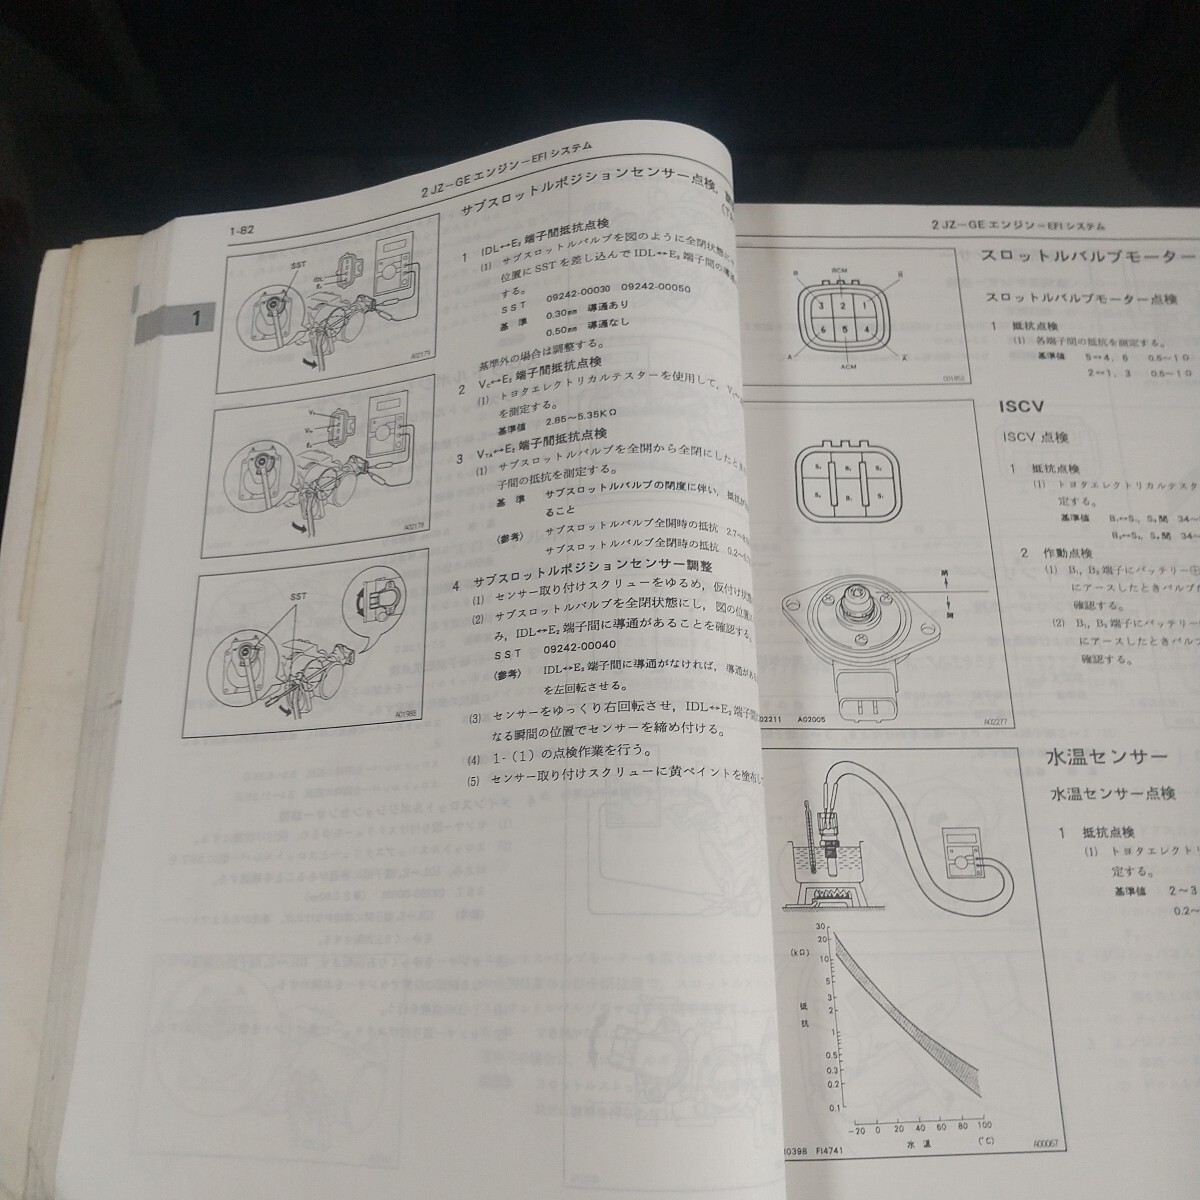 2JZ-GEエンジン-EFIシステム
1-82
1
サブスロットルポジションセンサー点検，
1 IDL↔E₂端子間抵抗点検
(1) サブスロットルバルブを図のように全閉状態に
位置にSSTを差し込んでIDL↔E₂端子間の導通
する。
SST 09242-00030 09242-00050
基準 0.30mm 導通あり
0.50mm 導通なし
基準外の場合は調整する。
2 Vc↔E₂端子間抵抗点検
(1) トヨタエレクトリカルテスターを使用して，
を測定する。
基準値 2.85~5.35KΩ
3 VTA↔E₂端子間抵抗点検
(1) サブスロットルバルブを全開から全閉にしたとき
子間の抵抗を測定する。
基準 サブスロットルバルブの閉度に伴い，抵抗が
ること
(参考) サブスロットルバルブ全開時の抵抗
サブスロットルバルブ全閉時の抵抗
4 サブスロットルポジションセンサー調整
(1) センサー取り付けスクリューをゆるめ，仮付け状態
(2) サブスロットルバルブを全閉状態にし，図の位置
み，IDL↔E₂端子間に導通があることを確認する。
SST 09242-00040
(参考) IDL↔E₂端子間に導通がなければ，導通があ
を左回転させる。
(3) センサーをゆっくり右回転させ，IDL↔E₂端子間
なる瞬間の位置でセンサーを締め付ける。
(4) 1-(1)の点検作業を行う。
(5) センサー取り付けスクリューに黄ペイントを塗布し
SST
A02175
A02178
SST
A01988
2JZ-GEエンジン-EFIシステム
スロットルバルブモーター
スロットルバルブモーター点検
1 抵抗点検
(1) 各端子間の抵抗を測定する。
基準値 5↔4，6
2↔1，3
BCM
3 2 1
6 5 4
A
ACM
ISCV
ISCV点検
1 抵抗点検
(1) トヨタエレクトリカルテスタ
定する。
基準値
2 作動点検
(1) B₁，B₂端子にバッテリー⊕
にアースしたときバルブ
確認する。
(2) B₁，B₂端子にバッテリー
にアースしたときバルブ
確認する。
開
閉
A02005
A02277
水温センサー
水温センサー点検
1 抵抗点検
(1) トヨタエレクトリ
定する。
基準値 2~3
0.2~
(kΩ)
抵抗
30
20
10
5
3
2
1
0.5
0.3
0.2
0.1
-20 0 20 40 60 80 100
水温 (℃)
FI4741
A00067